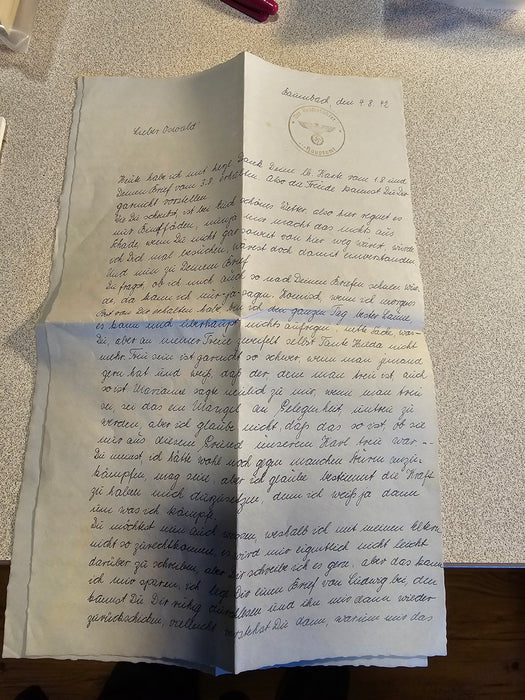 Baumbach, den 4.8.42
Lieber Oswald
Heute habe ich mit herzl. Dank Deine lb. Karte vom 1.8 und
Deinen Brief vom 3.8. erhalten. Also die Freude kannst Du Dir
garnicht vorstellen.
Wie Du schreibst, ist bei Euch schönes Wetter, also hier regnet es
nur Bindfäden, mir macht das nichts aus
Schade wenn Du nicht gar soweit von hier weg warst, würde
ich Dich mal besuchen, wärest doch damit einverstanden
Und nun zu Deinem Brief
Du fragst, ob ich mich auch so nach Deinen Briefen sehnen
de, da kann ich nur ja sagen. Komisch, wenn ich morgens
Post von Dir erhalten habe bin ich den ganzen Tag bester Laune
es kann mich überhaupt nichts aufregen.
Du, aber an meiner Treue zweifelt selbst Tante Hilda nicht
mehr. Treu sein ist garnicht so schwer, wenn man jemand
gern hat und weiß, daß der dem man treu ist auch
so ist Marianne sagte neulich zu mir, wenn man treu
sei, sei das ein Mangel an Gelegenheit, untreu zu
werden, aber ich glaube nicht, daß das so ist, ob sie
nur aus diesem Grund unserem Karl treu war --
Du meinst, ich hätte wohl noch gegen manchen Sturm anzu-
kämpfen, mag sein, aber ich glaube bestimmt die Kraft
zu haben mich durchzusetzen, denn ich weiß ja dann
um was ich kämpfe.
Du möchtest nun auch wissen, weshalb ich mit meinen Eltern
nicht so zurechtkomme, es wird mir eigentlich nicht leicht
darüber zu schreiben, aber Dir schreibe ich es gern, aber das kann
ich mir sparen, ich lege Dir einen Brief von Ludwig bei, den
kannst Du Dir ruhig durchlesen und ihn mir dann wieder
zurückschicken, vielleicht verstehst Du dann, warum mir das